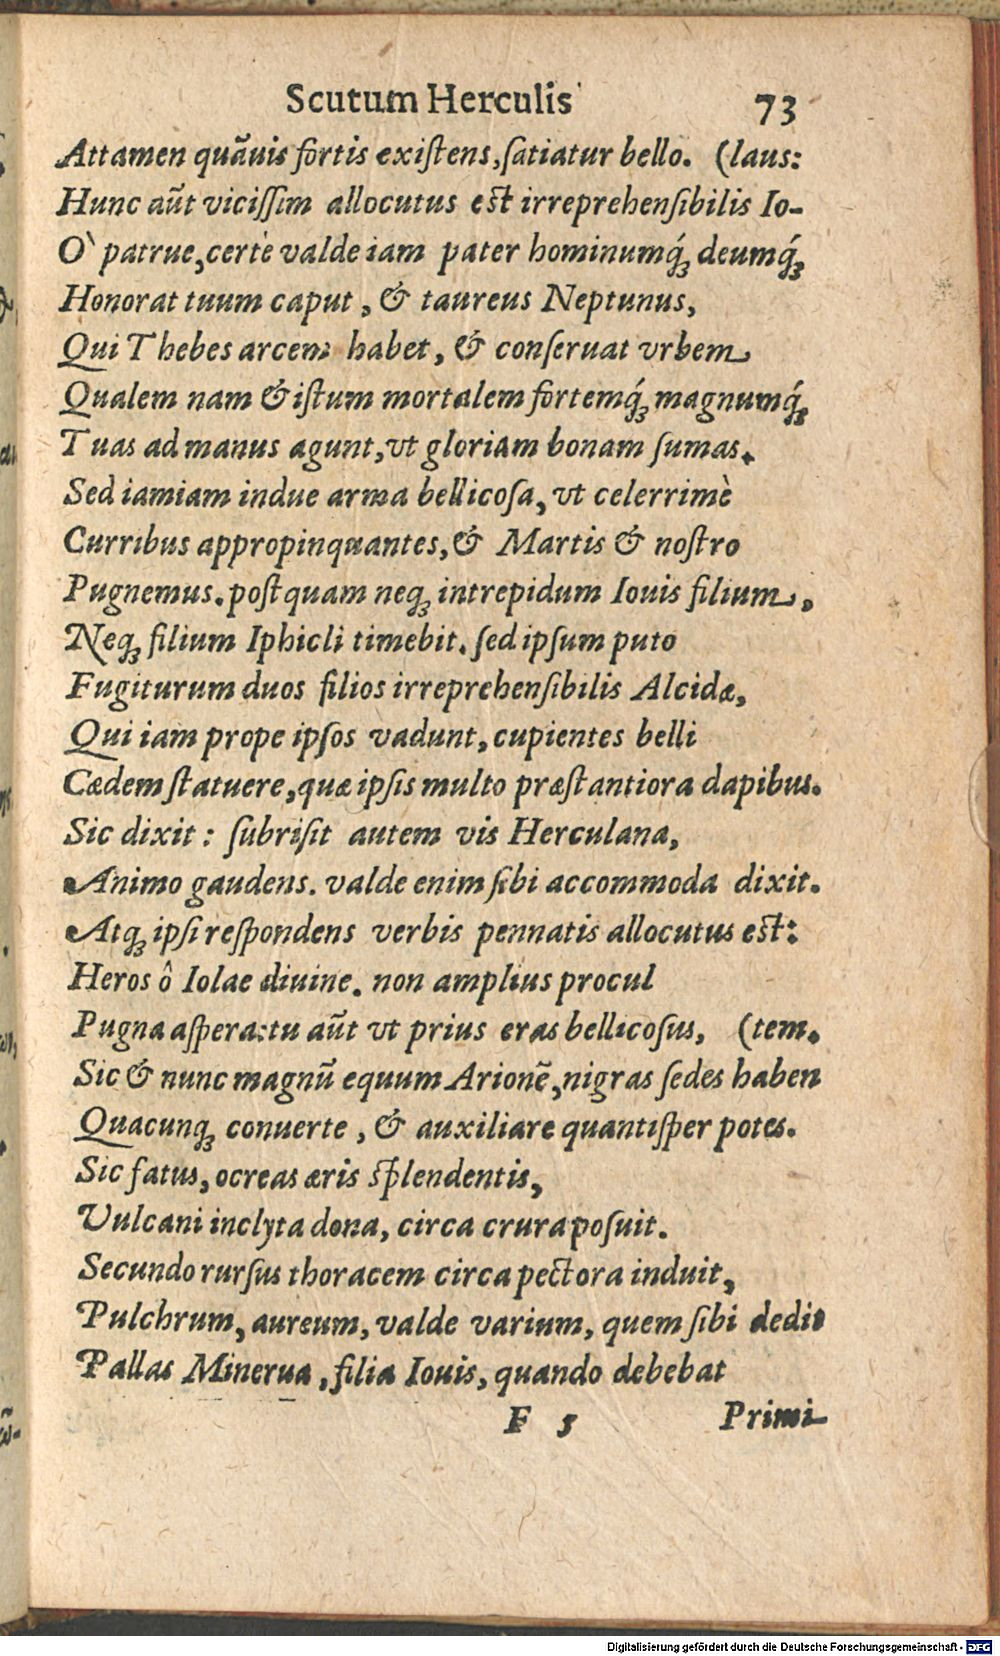 Scutum Herculis 73
Attamen quãuis fortis exiſtens, ſatiatur bello. (laus:
Hunc aũt viciſſim allocutus eſt irreprehenſibilis Io-
O` patrue, certè valde iam pater hominumq́ꝫ deumq́ꝫ
Honorat tuum caput, & taureus Neptunus,
Qui Thebes arcem habet, & conſeruat vrbem
Qualem nam & iſtum mortalem fortemq́ꝫ magnumq́ꝫ
Tuas ad manus agunt, vt gloriam bonam ſumas.
Sed iamiam indue arma bellicoſa, vt celerrimè
Curribus appropinquantes, & Martis & noſtro
Pugnemus. poſtquam neqꝫ intrepidum Iouis filium,
Neqꝫ filium Iphicli timebit. ſed ipſum puto
Fugiturum duos filios irreprehenſibilis Alcidæ,
Qui iam prope ipſos vadunt, cupientes belli
Cædem ſtatuere, quæ ipſis multo præſtantiora dapibus.
Sic dixit: ſubriſit autem vis Herculana,
Animo gaudens. valde enim ſibi accommoda dixit.
Atqꝫ ipſi reſpondens verbis pennatis allocutus eſt:
Heros ô Iolae diuine. non amplius procul
Pugna aſpera: tu aũt vt prius eras bellicoſus, (tem.
Sic & nunc magnũ equum Arionẽ, nigras ſedes haben
Quacunqꝫ conuerte, & auxiliare quantiſper potes.
Sic fatus, ocreas æris ſplendentis,
Vulcani inclyta dona, circa crura poſuit.
Secundo rurſus thoracem circa pectora induit,
Pulchrum, aureum, valde varium, quem ſibi dedit
Pallas Minerua, filia Iouis, quando debebat
F 5 Primi-
Digitalisierung gefördert durch die Deutsche Forschungsgemeinschaft - DFG